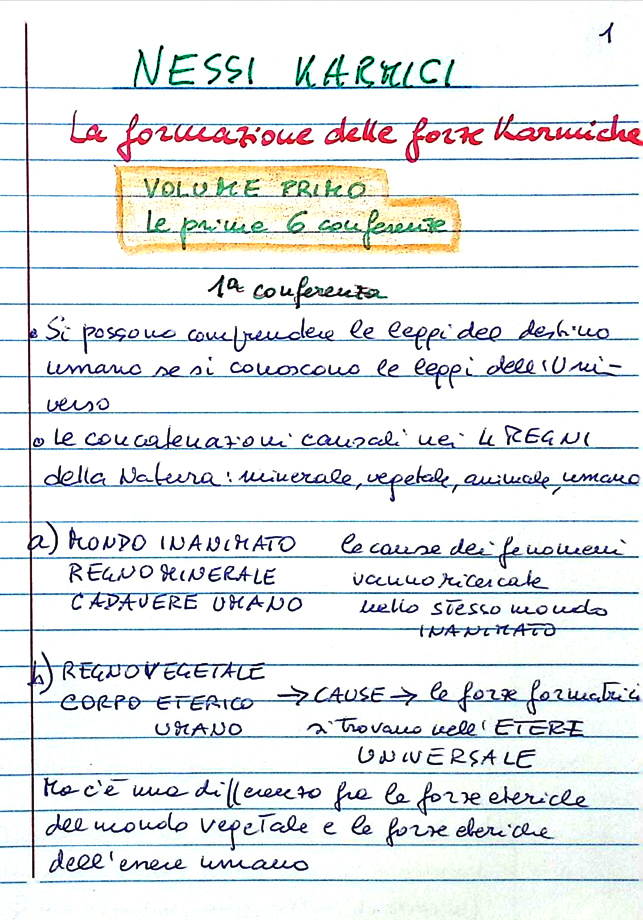 1
NESSI KARMICI
La formazione delle forze Karmiche
VOLUME PRIMO
Le prime 6 conferenze
1ª conferenza
• Si possono comprendere le leggi del destino
umano se si conoscono le leggi dell'Uni-
verso
• Le concatenazioni causali nei 4 REGNI
della Natura: minerale, vegetale, animale, umano
a) MONDO INANIMATO le cause dei fenomeni
REGNO MINERALE vanno ricercate
CADAVERE UMANO nello stesso mondo
INANIMATO
b) REGNO VEGETALE
CORPO ETERICO → CAUSE → le forze formatrici
UMANO si trovano nell'ETERE
UNIVERSALE
Ma c'è una differenza fra le forze eteriche
del mondo vegetale e le forze eteriche
dell'essere umano